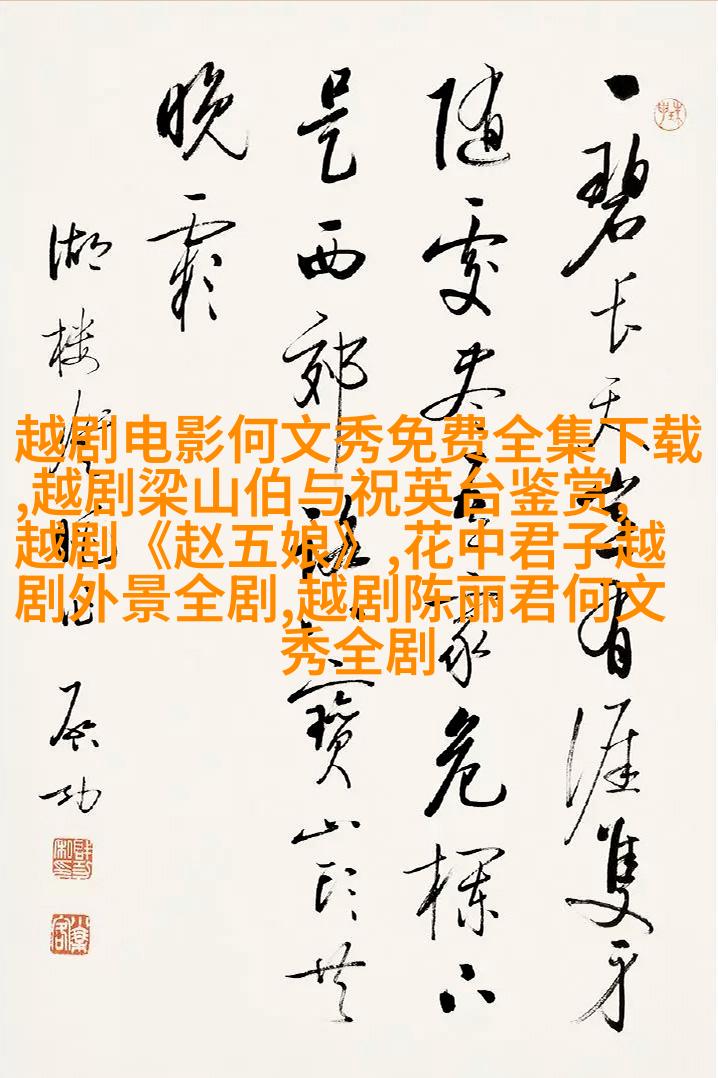 越剧电影何文秀免费全集下载
,越剧梁山伯与祝英台鉴赏,
越剧《赵五娘》,花中君子越
剧外景全剧,越剧陈丽君何文
秀全剧
一碧长天有涯隻
随处家危栏
是西郊路宝山
晚霞
湖楼晚
启功